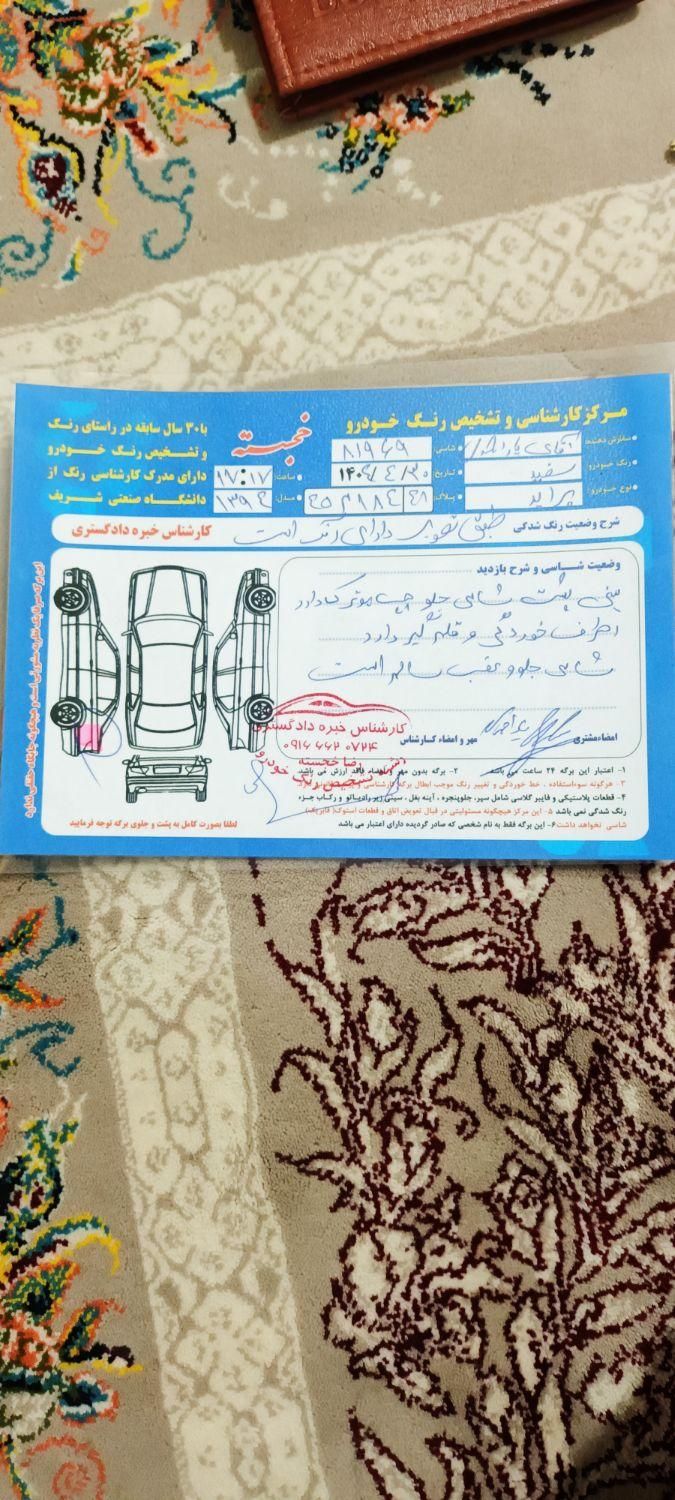 مرکز کارشناسی و تشخیص رنگ خودرو
با ۳۰ سال سابقه در راستای رنگ
و تشخیص رنگ خودرو
دارای مدرک کارشناسی رنگ از
دانشگاه صنعتی شریف
خجسته
سفارش دهنده: آقای
شاسی: ۸۱۹۶۹
رنگ خودرو: سفید
تاریخ: ۱۴۰۴/۴/۳۰
ساعت: ۱۷:۱۷
نوع خودرو: پراید
پلاک:
مدل: ۱۳۹۴
شرح وضعیت رنگ شدگی
طبق تصویر دارای رنگ است
کارشناس خبره دادگستری
وضعیت شاسی و شرح بازدید
سینی پشت شاسی جلو چپ
اطراف خوردگی و قلم گیر دارد
شاسی جلو و عقب سالم است
امضاء مشتری
مهر و امضاء کارشناس
کارشناس خبره دادگستری
۰۹۱۶ ۶۶۲ ۰۷۲۴
رضا خجسته
تشخیص رنگ خودرو
۱- اعتبار این برگه ۲۴ ساعت می باشد
۲- برگه بدون مهر و امضاء فاقد ارزش می باشد
۳- هرگونه سوءاستفاده ، خط خوردگی و تغییر رنگ موجب ابطال برگه کارشناسی
۴- قطعات پلاستیکی و فایبر گلاسی شامل سپر، جلوپنجره ، آینه بغل ، سینی زیر رادیاتور و رکاب جزء
رنگ شدگی نمی باشد ۵- این مرکز هیچگونه مسئولیتی در قبال تعویض اتاق و قطعات استوک( فابریک)
شاسی نخواهد داشت ۶- این برگه فقط به نام شخصی که صادر گردیده دارای اعتبار می باشد
لطفا بصورت کامل به پشت و جلوی برگه توجه فرمایید